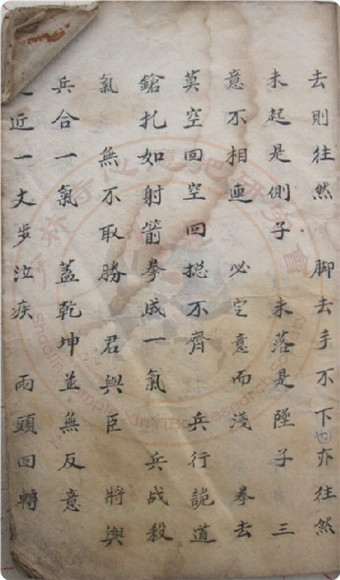 去則往然 脚去手不下也亦往然
未起是側子 未落是墜子 三
意不相連 必定意而淺 拳去
莫空回空回摠不齊 兵行詭道
鎗扎如射箭拳成一氣 兵战殺
氣 無不取勝 君與臣 將與
兵合一氣 蓋乾坤並無反意
近一丈步 疾 兩頭回轉